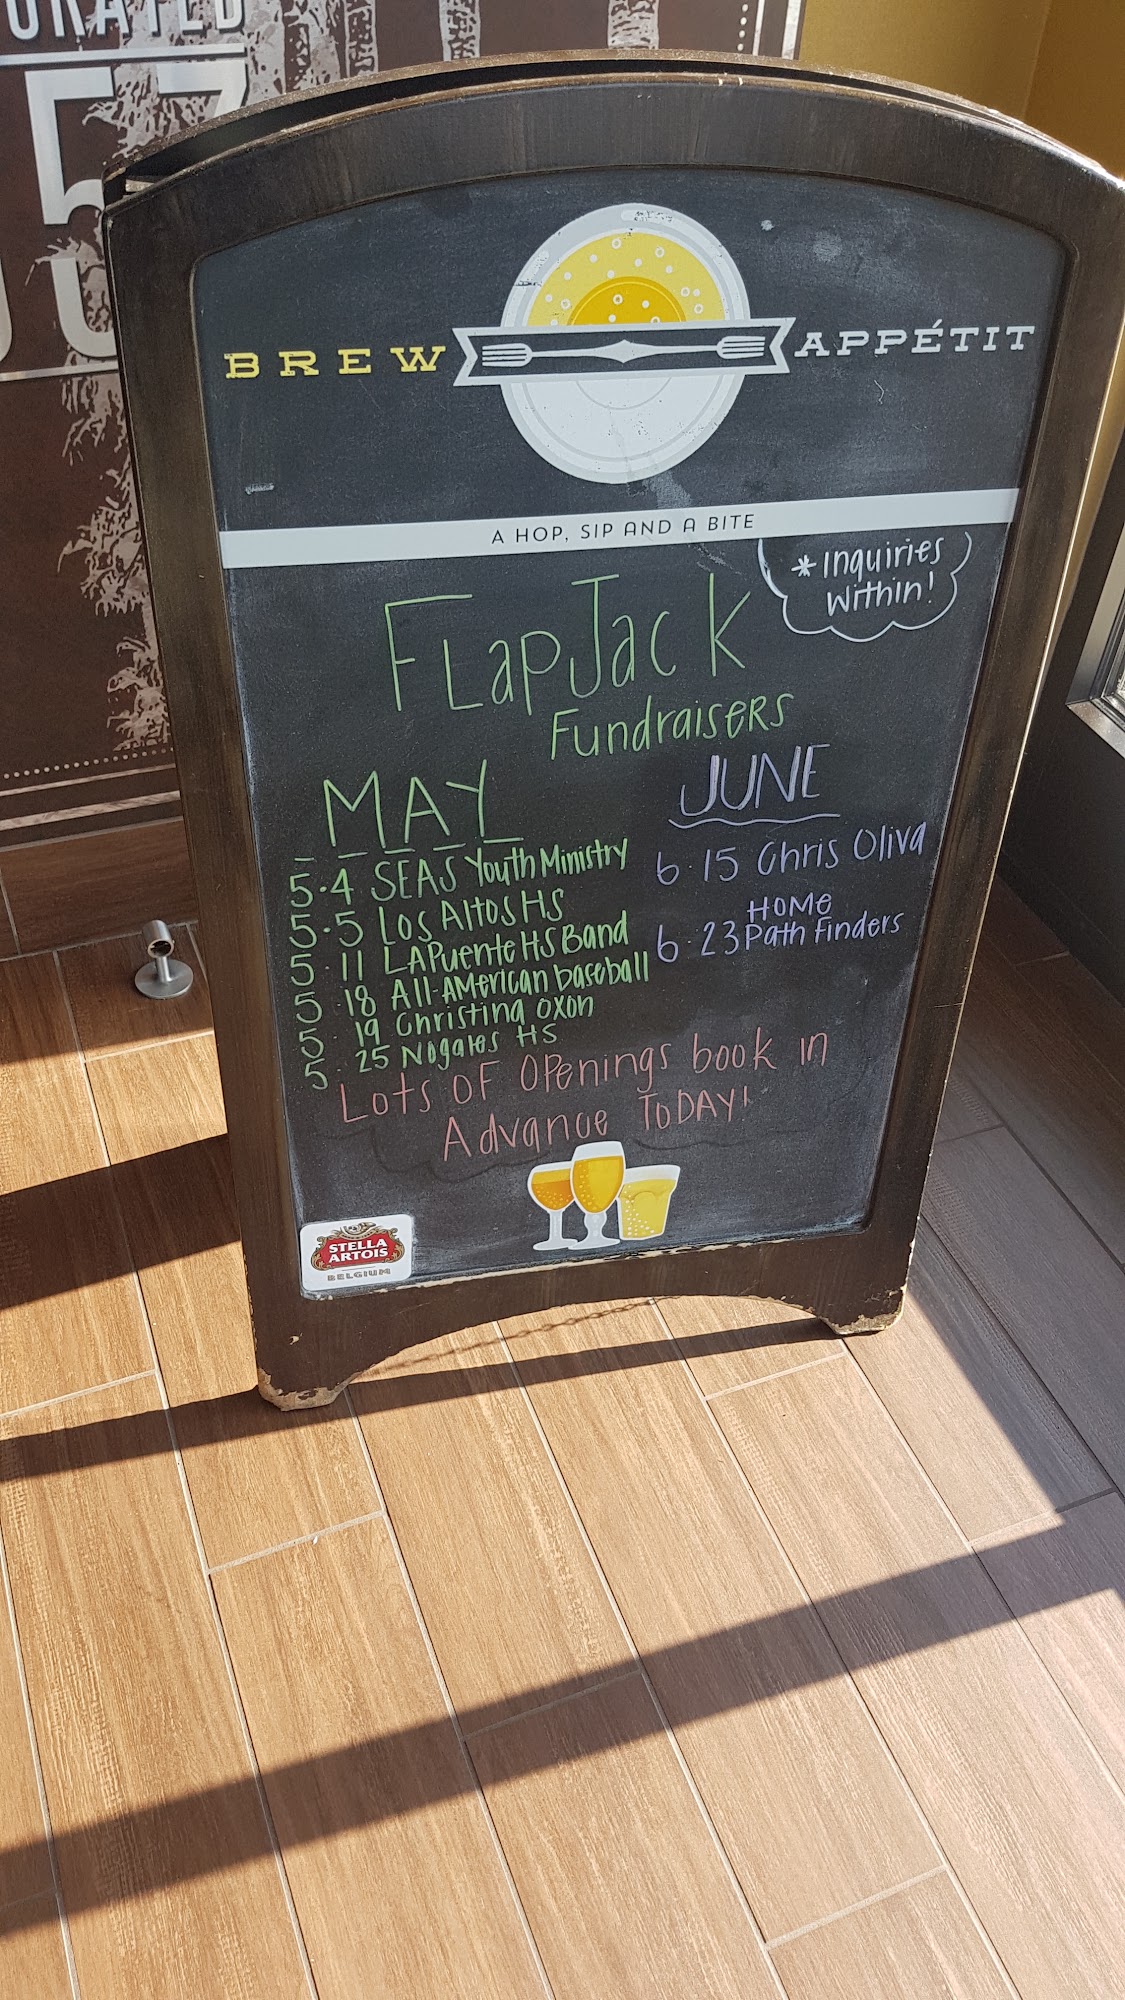 57
BREW APPÉTIT
A HOP, SIP AND A BITE
*Inquiries
Within!
FLapJack
FundraiseRs
MAY
5·4 SEAS Youth Ministry
5·5 Los Altos HS
5·11 LAPuente HS Band
5·18 All-AMErican baseball
5·19 Christina Oxon
5·25 Nogales HS
JUNE
6·15 Chris Oliva
6·23 HOMe
Path Finders
Lots OF OPenings book in
Advance ToDAY!
STELLA
ARTOIS
BELGIUM